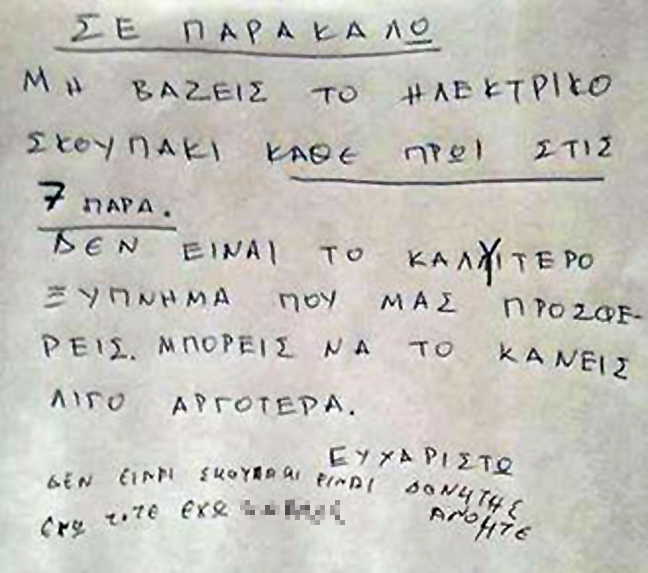 ΣΕ ΠΑΡΑΚΑΛΩ
ΜΗ ΒΑΖΕΙΣ ΤΟ ΗΛΕΚΤΡΙΚΟ
ΣΚΟΥΠΑΚΙ ΚΑΘΕ ΠΡΩΙ ΣΤΙΣ
7 ΠΑΡΑ.
ΔΕΝ ΕΙΝΑΙ ΤΟ ΚΑΛΥΤΕΡΟ
ΞΥΠΝΗΜΑ ΠΟΥ ΜΑΣ ΠΡΟΣΦΕ-
ΡΕΙΣ. ΜΠΟΡΕΙΣ ΝΑ ΤΟ ΚΑΝΕΙΣ
ΛΙΓΟ ΑΡΓΟΤΕΡΑ.
ΕΥΧΑΡΙΣΤΩ
ΔΕΝ ΕΙΝΑΙ ΣΚΟΥΠΑΚΙ ΕΙΝΑΙ ΔΟΝΗΤΗΣ
ΤΟΤΕ ΕΧΩ